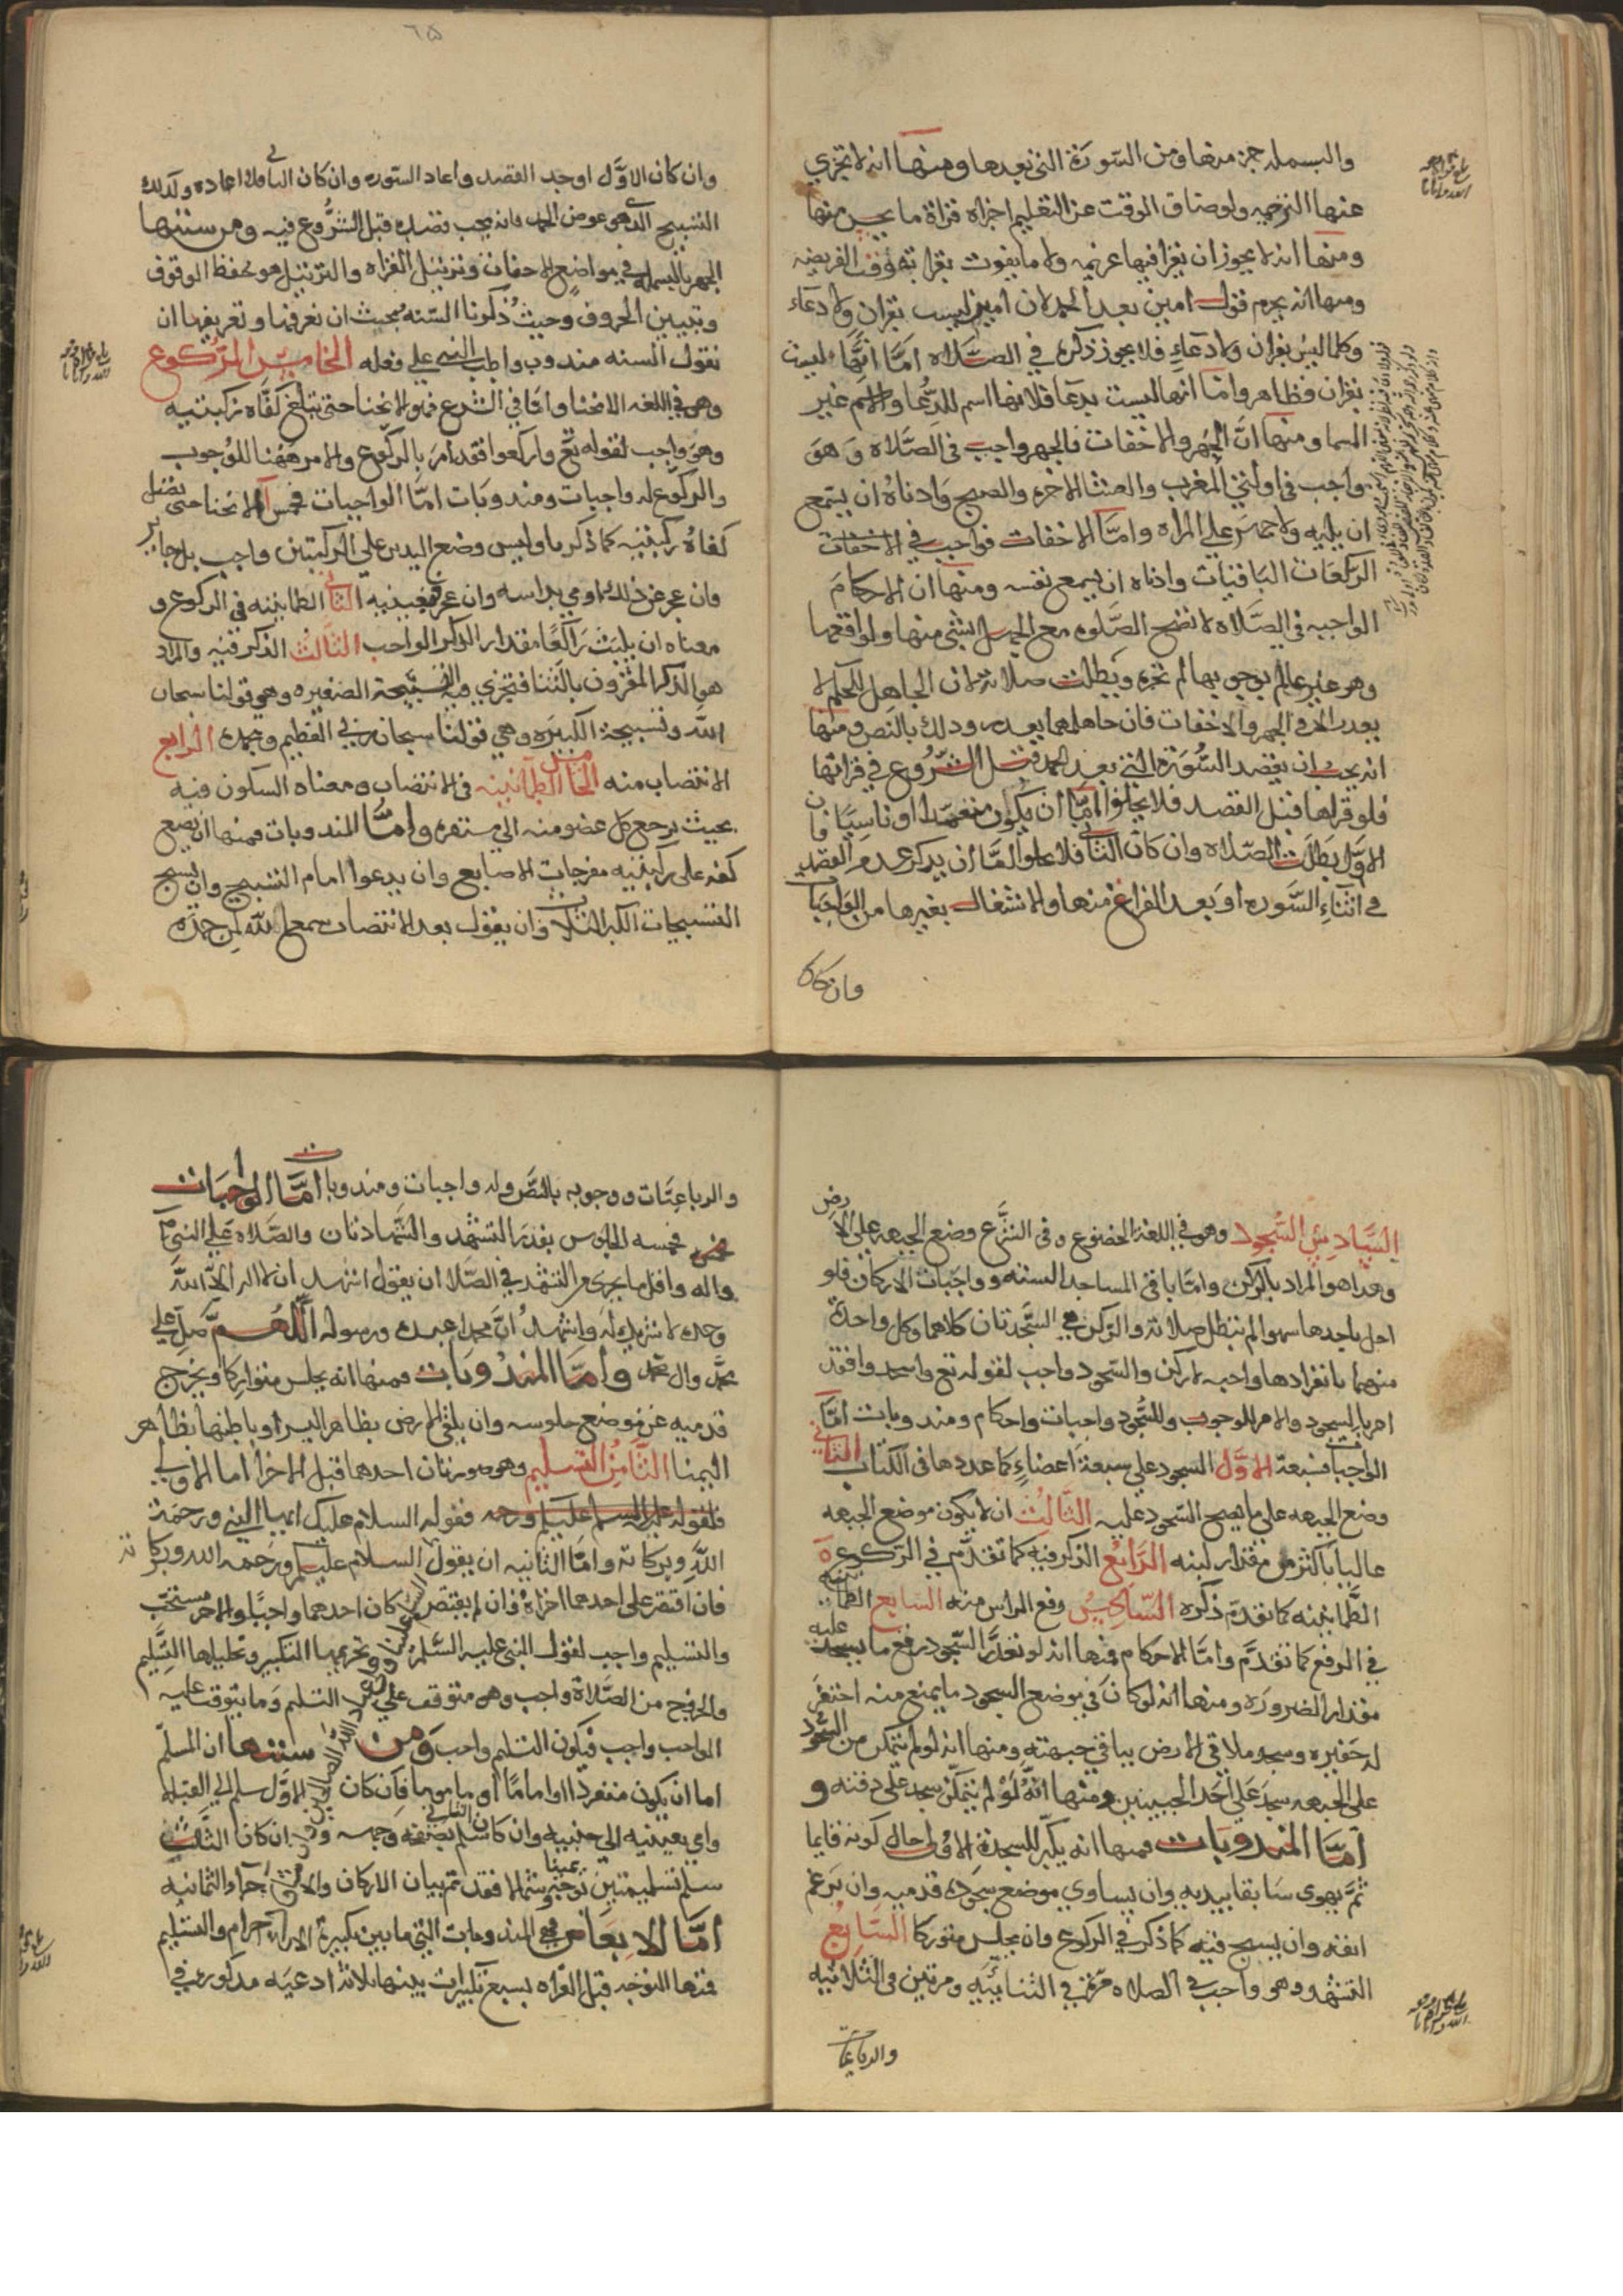 ٦٥
والبسمله جز منها ومن السّورة التي بعدها ومنها انه لا تجزي
عنها الترجمه ولو ضاق الوقت عن التعليم اجزاه قراة ما يحسن منها
ومنها انه لا يجوز ان يقرا فيها عزيمه ولا ما يفوت بقرا ته وقت الفريضه
ومنها انه يحرم قول امين بعد الحمد لان امين ليست بقران ولا دعاء
وكلما ليس بقران ولا دعاء فلا يجوز ذكره في الصّلاه امّا انّها ليست
بقران فظاهر وامّا انها ليست بدعا فلانها اسم للدّعا والاسم غير
المسما ومنها انّ الجهر والاخفات فالجهر واجب في الصّلاه وهو
واجب في اولتي المغرب والعشا الاخره والصبح وادناه ان يسمع
من يليه ولا جهر على المراه وامّا الاخفات فواجب في
الركعات الباقيات وادناه ان يسمع نفسه ومنها ان الاحكام
الواجبه في الصّلاه لا تصح الصّلوه مع الجهل بشي منها ولو اقعها
وهو غير عالم بوجوبها لم تجزه وبطلت صلاته لان الجاهل لا
يعدر الا في الجهر والاخفات فان جاهلهما يعدر وذلك بالنص ومنها
انه يجب ان يقصد السّورة التي بعد الحمد قبل الشّروع في قراتها
فلو قراها قبل القصد فلا يخلوا امّا ان يكون متعمدا او ناسيًا فان
الاوّل بطلت الصّلاه وان كان الثاني فلا يخلوا امّا ان يدكر عدم القصد
في اثناء السّوره او بعد الفراغ منها والاشتغال بغيرها من الواجبات
وان كان
وان كان الاوّل اوجد القصد واعاد السّوره وان كان الثاني فلا اعاده وكذلك
التسبيح الذي هو عوض الحمد فانه يجب قصده قبل الشّروع فيه ومن سننها
الجهر بالبسمله في مواضع الاخفات وترتيل القراه والترتيل هو حفظ الوقوف
وتبيين الحروف وحيث ذكرنا السّنه فيجب ان نعرفها وتعريفها ان
نقول السنه مندوب واظب النبي على فعله الخامس الرّكوع
وهو في اللغه الانحنا وامّا في الشرع فهو الانحنا حتى تبلغ كفّاه ركبتيه
وهو واجب لقوله تع واركعوا فقد امر بالرّكوع والامر ههنا للوجوب
والركوع له واجبات ومندوبات امّا الواجبات فخمس آ الانحنا حتى تصل
كفاه ركبتيه كما ذكرنا وليس وضع اليدين على الركبتين واجب بل جايز
فان عجز عن ذلك اومي براسه وان عجز فبعينيه الثاني الطمانينه في الركوع و
معناه ان يلبث راكعًا مقدار الذكر الواجب الثالث الذكر فيه والمراد
هو الذكر المقرون بالثنا فتجزي فيه التسبيحة الصغيره وهي قولنا سبحان
الله وتسبيحة الكبيره وهي قولنا سبحان ربي العظيم وبحمده الرابع
الانتصاب منه الخامس الطمانينه في الانتصاب ومعناه السكون فيه
بحيث يرجع كل عضو منه الى مستقره وامّا المندوبات فمنها ان يضع
كفيه على ركبتيه مفرجات الاصابع وان يدعوا امام التسبيح وان يسبح
التسبيحات الكبرا ثلاثًا وان يقول بعد الانتصاب سمع الله لمن حمده
السّادس السّجود وهو في اللغة الخضوع وفي الشّرع وضع الجبهه على الارض
وهذا هو المراد بالركن وامّا باقي المساجد السته وواجبات الاركان فلو
اخل باحدها سهوا لم تبطل صلاته والركن هي السّجدتان كلاهما وكل واحدة
منهما بانفرادها واجبه لا ركن والسّجود واجب لقوله تع واسجدوا فقد
امر بالسجود والامر للوجوب وللسّجود واجبات واحكام ومندوبات امّا
الواجبات فسبعة الاوّل السجود على سبعة اعضاءٍ كما عددها في الكتاب الثاني
وضع الجبهه على ما يصح السّجود عليه الثالث ان لا يكون موضع الجبهه
عاليا باكثر من مقدار لبنه الرابع الذكر فيه كما تقدّم في الرّكوع ه
الطّمانينه كما تقدم ذكره السّادس رفع الراس منه السابع الطمانينه
في الرفع كما تقدّم وامّا الاحكام فمنها انه لو تعذّر السّجود رفع ما يسجد عليه
مقدار الضروره ومنها انه لو كان في موضع السجود ما يمنع منه احتفر
له حفيره وسجد ملاقي الارض بباقي جبهته ومنها انه لو لم يتمكن من السّجود
على الجبهه سجد على احد الجبينين ومنها انّه لو لم يتمكّن سجد على دقنه و
امّا المندوبات فمنها انه يكبّر للسجدة الاولى حال كونه قايما
ثمّ يهوى سابقا بيديه وان يساوي موضع سجوده قدميه وان يرغم
انفه وان يسبح فيه كما ذكر في الركوع وان يجلس متوركا السّابع
التشهد وهو واجب في الصلاه مرّة في الثنائيّه ومرتين في الثلاثيه
والرباعيات
والرباعيّات ووجوبه بالنّصّ وله واجبات ومندوبات امّا الواجبات
فخمسه الجلوس بقدر التشهّد والشّهادتان والصّلاه على النبيّ
واله واقل ما يجزي من التشهد في الصّلاه ان يقول اشهد ان لا اله الاّ الله
وحده لا شريك له واشهد انّ محمدا عبده ورسوله اللّهمّ صلّ على
محمّد وال محمد وامّا المندوبات فمنها انه يجلس متوركا ويخرج
قدميه عن موضع جلوسه وان يلقي الارض بظاهر اليسرا وباطنها بظاهر
اليمنا الثّامن التسليم وهو صورتان احدهما قبل الاخرا اما الاولى
فقوله السلام عليك ايها النبي ورحمة
الله وبركاته وامّا الثانيه ان يقول السلام عليكم ورحمه الله وبركاته
فان اقتصر على احدهما اجزاه وان لم يقتصر كان احدهما واجبًا والاخر مستحب
والتسليم واجب لقول النبي عليه السّلم وتحريمها التكبير وتحليلها التّسليم
والخروج من الصّلاة واجب وهو متوقف على التسليم وما يتوقف عليه
الواجب واجب فيكون التسليم واجب ومن سننها ان المسلّم
اما ان يكون منفردا او امامًا او ماموما فان كان الاوّل سلم الى القبله
واومي بعينيه الى جنبيه وان كان الثاني سلّم بصفحة وجهه وان كان الثالث
سلم تسليمتين بوجهه يمينا وشمالا فقد تم بيان الاركان والافعال
امّا الابعاض فهي المندوبات التي ما بين تكبيرة الاحرام والتسليم
فمنها التوجه قبل القراه بسبع تكبيرات بينها ثلاثه ادعيه مذكوره في